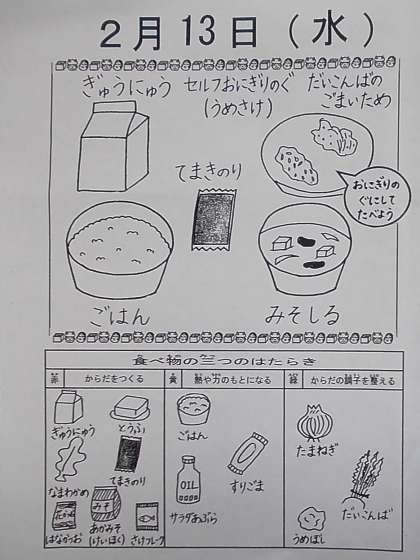 2月13日(水)
ぎゅうにゅう
セルフおにぎりのぐ
(うめさけ)
だいこんばの
ごまいため
てまきのり
おにぎりの
ぐにして
たべよう
ごはん
みそしる
食べ物の三つのはたらき
赤 からだをつくる
黄 熱や力のもとになる
緑 からだの調子を整える
ぎゅうにゅう
とうふ
なまわかめ
てまきのり
はなかつお
みそ
あかみそ
(けいほく)
さけフレーク
ごはん
OIL
サラダあぶら
すりごま
たまねぎ
うめぼし
だいこんば